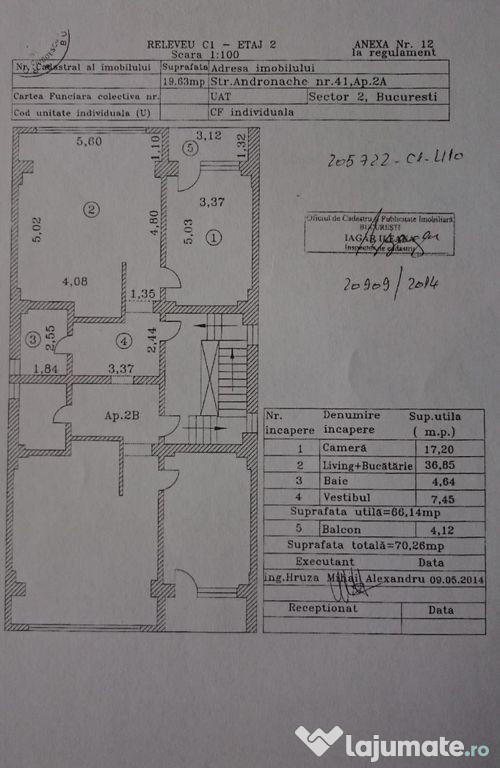 RELEVEU C1 - ETAJ 2
Scara 1:100
ANEXA Nr. 12
la regulament
Nr. Cadastral al imobilului
Suprafata
Adresa imobilului
19.63mp
Str.Andronache nr.41,Ap.2A
Cartea Funciara colectiva nr.
UAT
Sector 2, Bucuresti
Cod unitate individuala (U)
CF individuala
5,60
1,10
5
3,12
1,32
205722-C1-U10
2
5,02
4,80
3,37
5,03
1
Oficiul de Cadastru și Publicitate Imobiliară
BUCUREȘTI
IAGĂR ILEANA
Inspector de cadastru
4,08
1,35
20909/2014
3
2,55
4
2,44
1,84
3,37
Ap.2B
Nr. incapere
Denumire incapere
Sup.utila ( m.p.)
1 Cameră 17,20
2 Living+Bucătărie 36,85
3 Baie 4,64
4 Vestibul 7,45
Suprafata utilă=66,14mp
5 Balcon 4,12
Suprafata totală=70,26mp
Executant Data
ing.Hruza Mihai Alexandru 09.05.2014
Receptionat Data
lajumate.ro